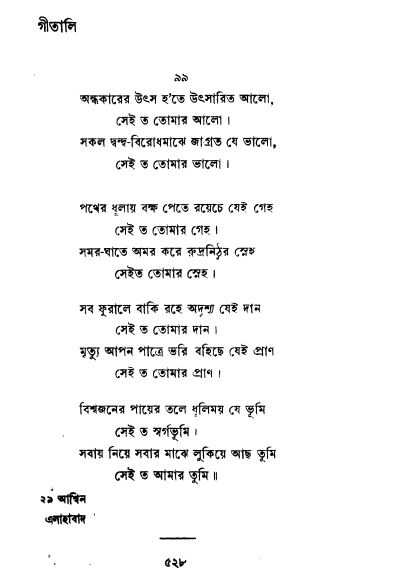 গীতালি
৯৯
অন্ধকারের উৎস হ'তে উৎসারিত আলো,
সেই ত তোমার আলো।
সকল দ্বন্দ্ব-বিরোধমাঝে জাগ্রত যে ভালো,
সেই ত তোমার ভালো।
পথের ধূলায় বক্ষ পেতে রয়েচে যেই গেহ
সেই ত তোমার গেহ।
সমর-ঘাতে অমর করে রুদ্রনিঠুর স্নেহ
সেইত তোমার স্নেহ।
সব ফুরালে বাকি রহে অদৃশ্য যেই দান
সেই ত তোমার দান।
মৃত্যু আপন পাত্রে ভরি বহিছে যেই প্রাণ
সেই ত তোমার প্রাণ।
বিশ্বজনের পায়ের তলে ধূলিময় যে ভূমি
সেই ত স্বর্গভূমি।
সবায় নিয়ে সবার মাঝে লুকিয়ে আছ তুমি
সেই ত আমার তুমি॥
২৯ আশ্বিন
এলাহাবাদ
৫২৮